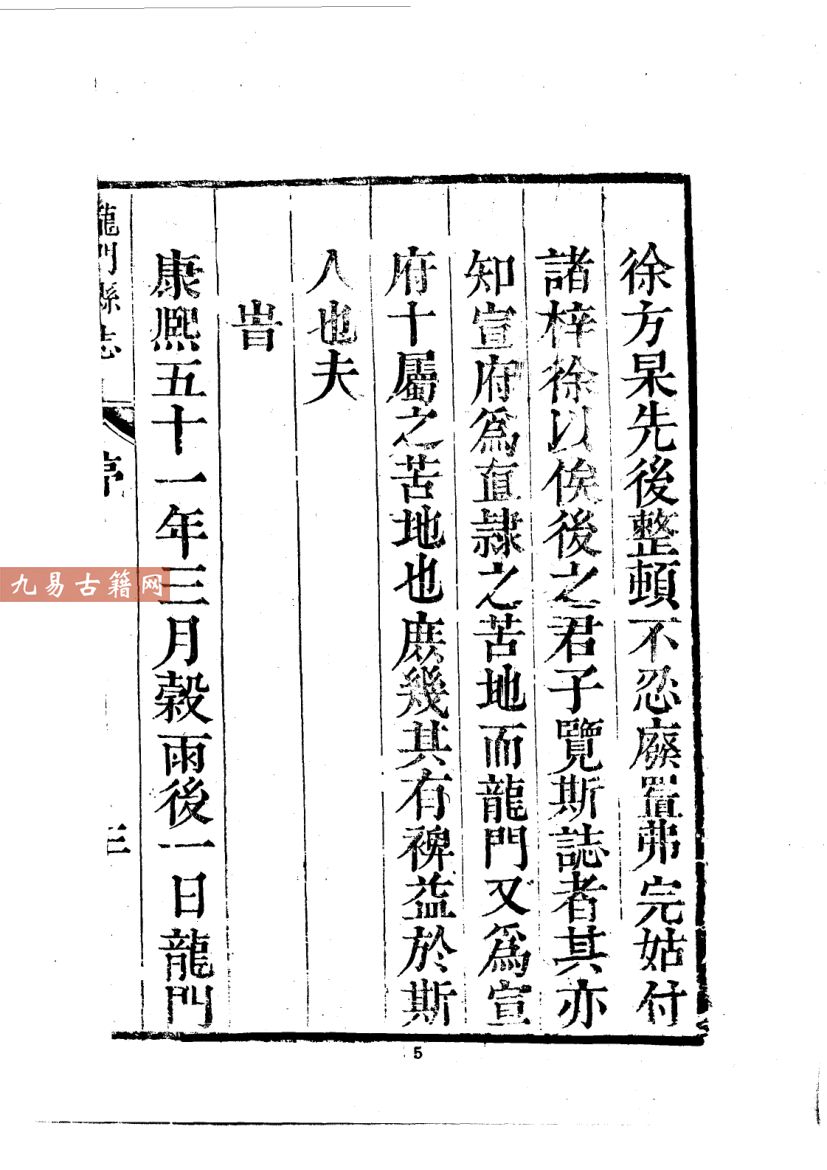 徐方杲先後整頓不忍廢置弗完姑付
諸梓徐以俟後之君子覽斯誌者其亦
知宣府為直隸之苦地而龍門又為宣
府十屬之苦地也庶幾其有裨益於斯
人也夫
旹
康熙五十一年三月穀雨後一日龍門
龍門縣志
序
三
九易古籍网
5